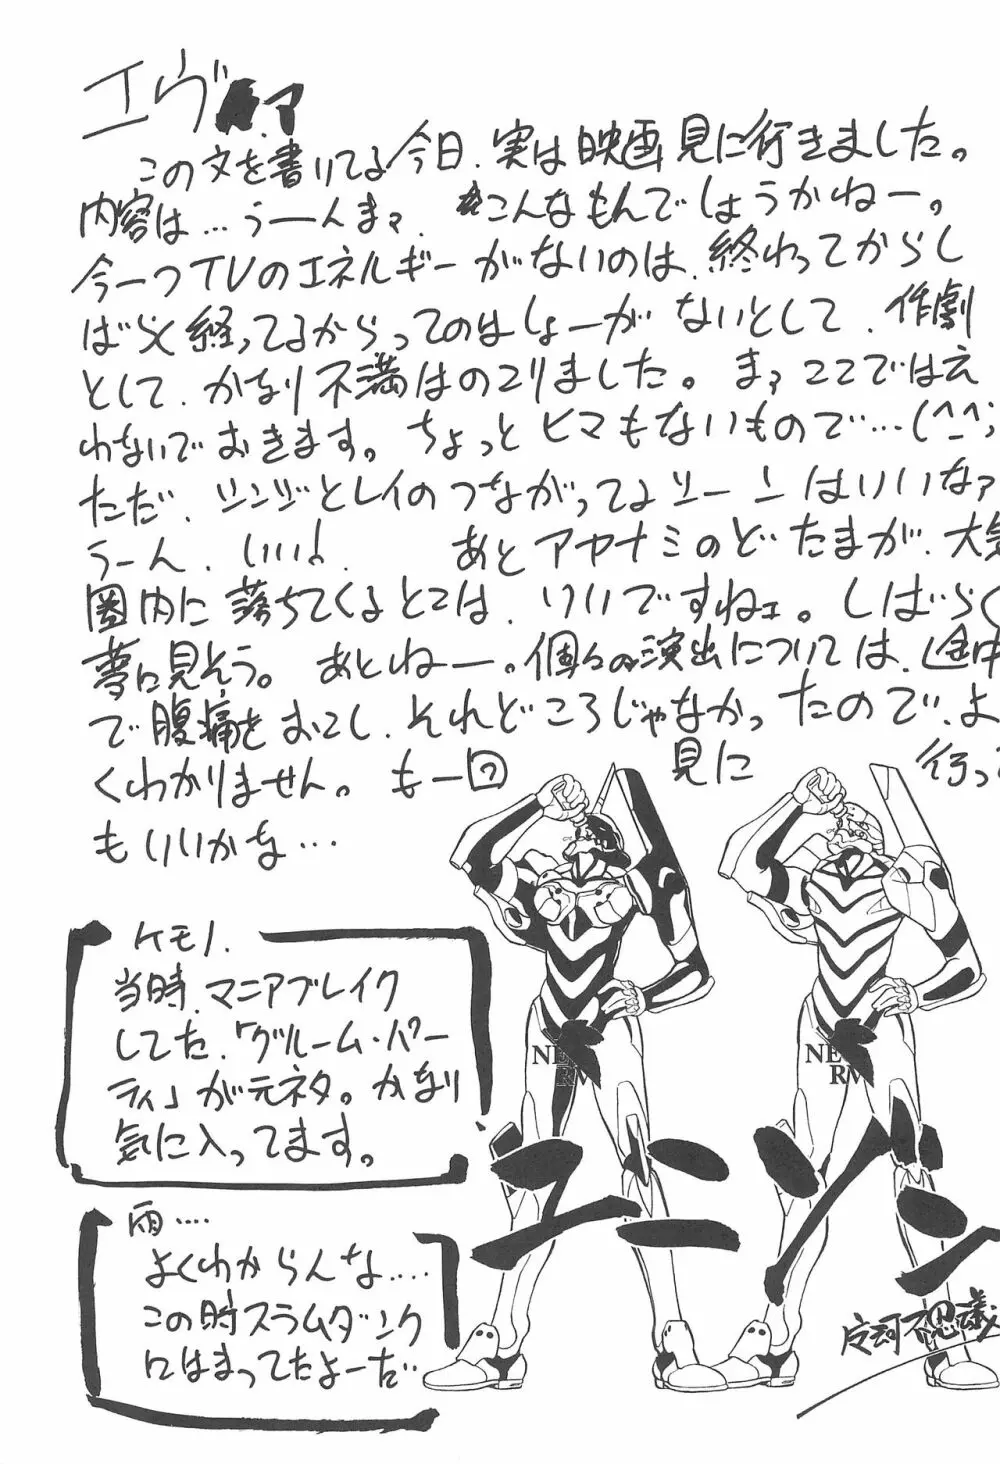 エヴァ
この文を書いてる今日、実は映画見に行きました。
内容は…うーんまァ、こんなもんでしょうかねー。
今一つTVのエネルギーがないのは、終わってからし
ばらく経ってるからってのはしょーがないとして、作劇
として、かなり不満はのこりました。まァここでは云
わないでおきます。ちょっとヒマもないもので…(^_^;
ただ、シンジとレイのつながってるシーンはいいなァ
うーん、いい!あとアヤナミのどたまが、大気
圏内に落ちてくるとこは、いいですねェ。しばらく
夢に見そう。あとねー。個々の演出については、途中
で腹痛をおこし、それどころじゃなかったので、よ
くわかりません。も一回見に行って
もいいかな…
ケモノ、
当時、マニアブレイク
してた、「グルーム・パー
ティ」が元ネタ。かなり
気に入ってます。
雨….
よくわからんな….
この時スラムダンク
にはまってたよーだ…
NE
RV
NE
RV
エン
不思議